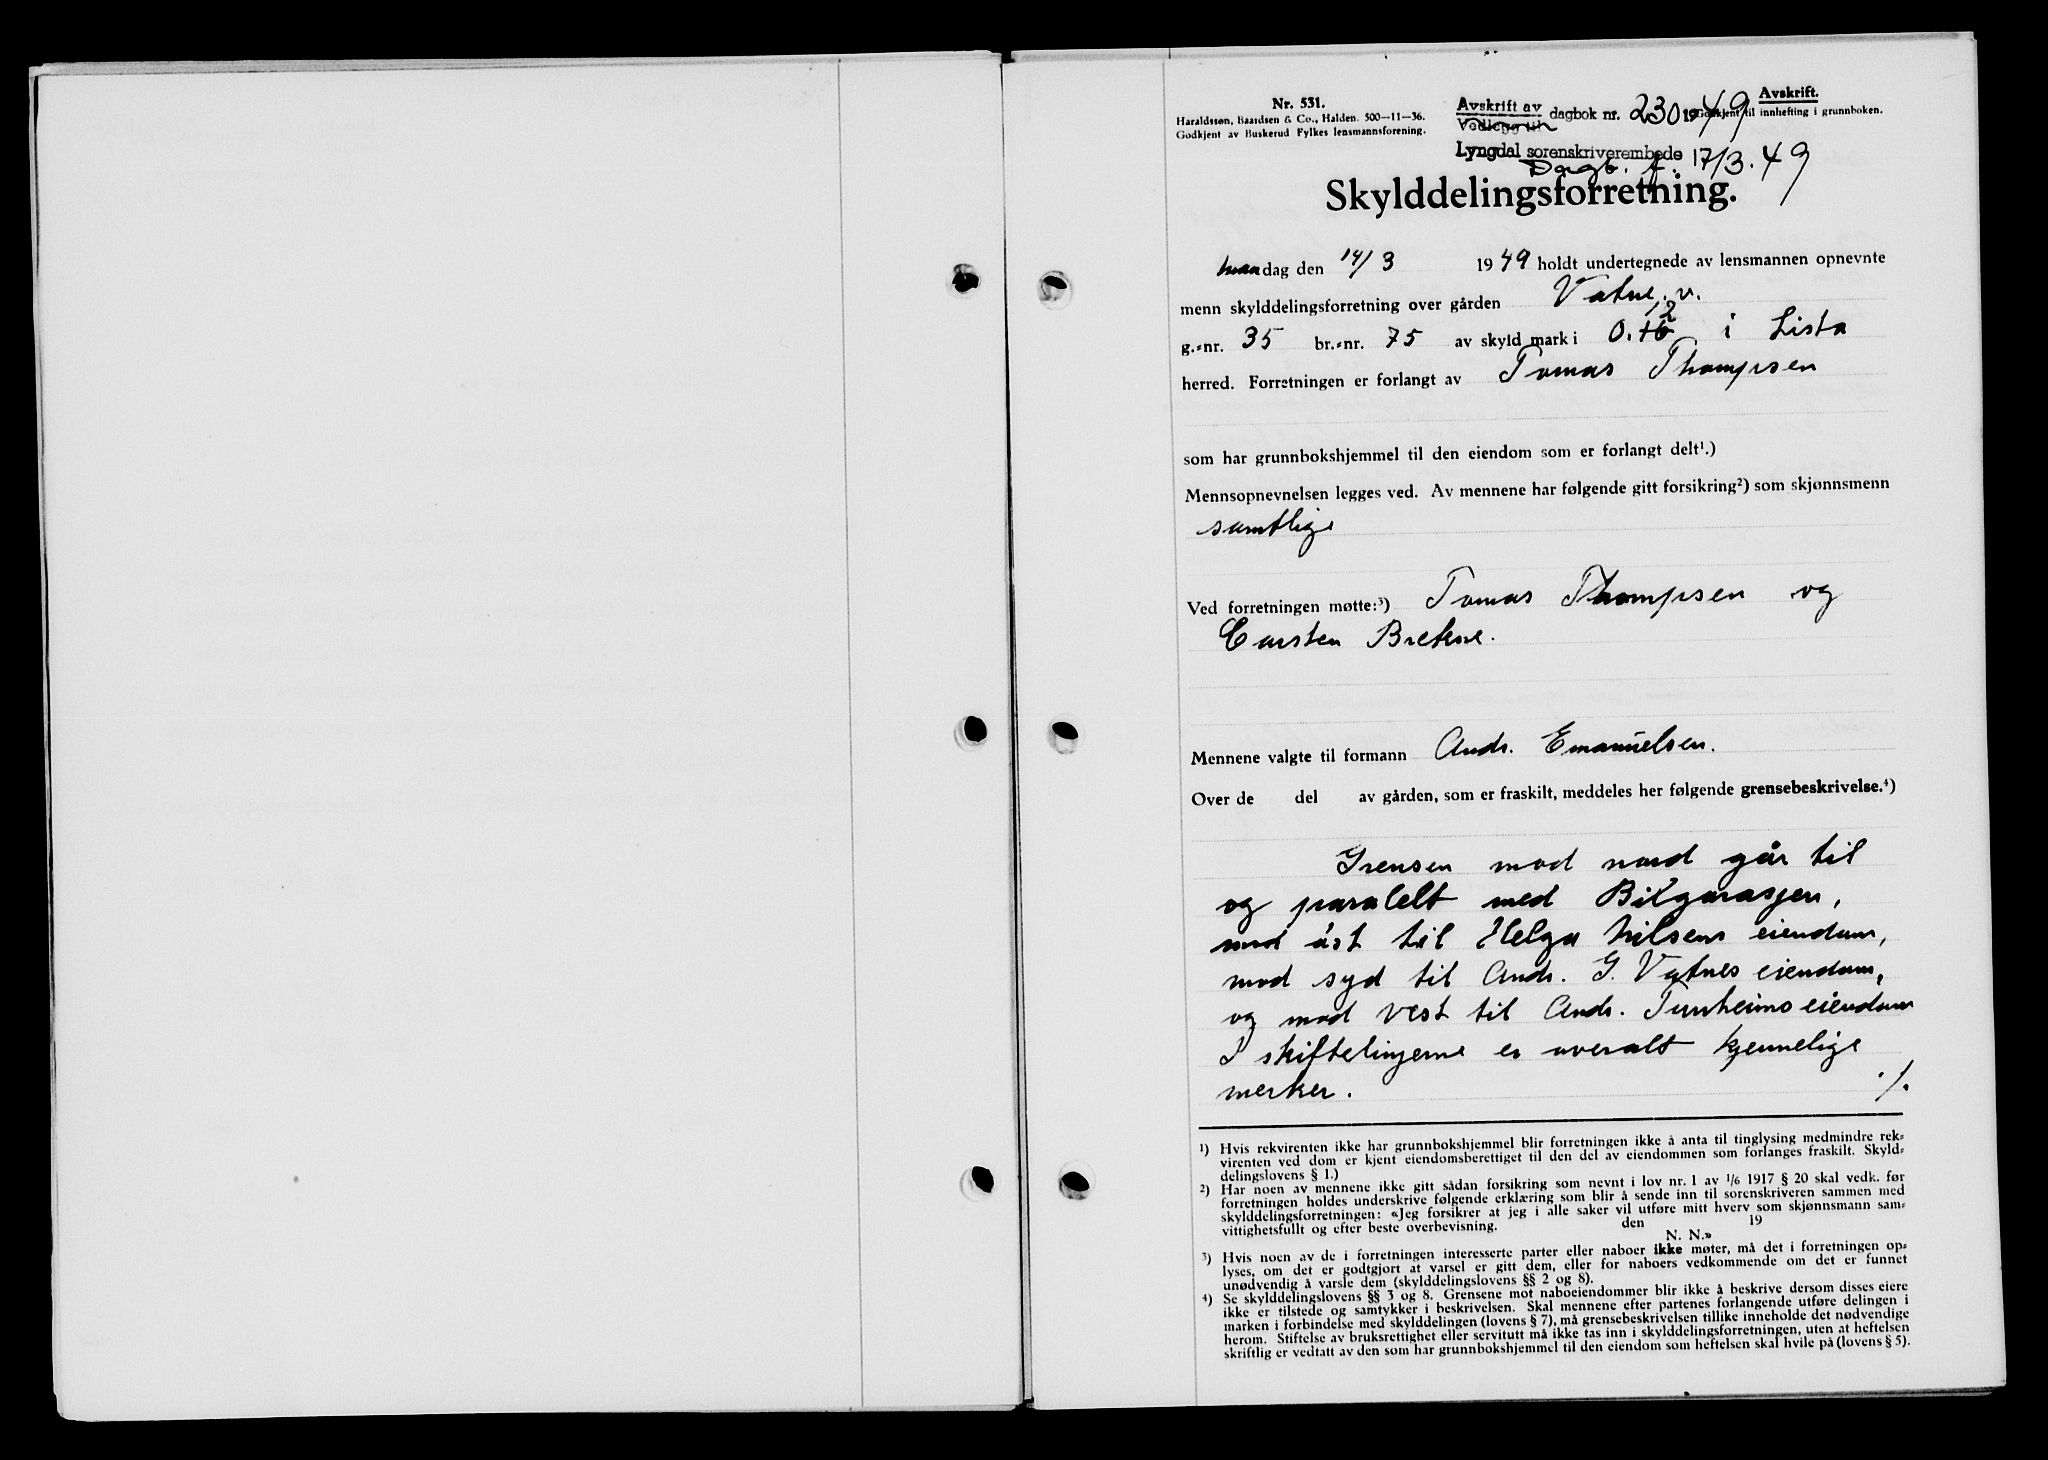 Nr. 531.
Haraldssøn, Baardsen & Co., Halden. 500—11—36.
Godkjent av Buskerud Fylkes lensmannsforening.
Avskrift.
Godkjent til innhefting i grunnboken.
Avskrift av
Vedlegg til
dagbok nr. 230 1949
Lyngdal sorenskriverembede
Dagb. f. 17/3.49
Skylddelingsforretning.
mandag den 14/3 1949 holdt undertegnede av lensmannen opnevnte
menn skylddelingsforretning over gården Vatne. v.
g.=nr. 35 br.=nr. 75 av skyld mark i 0.12 i Lista
herred. Forretningen er forlangt av Tomas Thompsen
som har grunnbokshjemmel til den eiendom som er forlangt delt¹.)
Mennsopnevnelsen legges ved. Av mennene har følgende gitt forsikring²) som skjønnsmenn
samtlige
Ved forretningen møtte:³) Tomas Thompsen og
Carsten Brekne.
Mennene valgte til formann Andr. Emanuelsen.
Over de del av gården, som er fraskilt, meddeles her følgende grensebeskrivelse.⁴)
Grensen mod nord går til
og paralelt med Bilgarasjen,
mod øst til Helga Nilsens eiendom,
mod syd til Andr. G. Vatnes eiendom,
og mod vest til Andr. Tunheims eiendom
I skiftelinjerne er overalt kjennelige
merker. ./.
¹) Hvis rekvirenten ikke har grunnbokshjemmel blir forretningen ikke å anta til tinglysing medmindre rek=
virenten ved dom er kjent eiendomsberettiget til den del av eiendommen som forlanges fraskilt. Skyld=
delingslovens § 1.)
²) Har noen av mennene ikke gitt sådan forsikring som nevnt i lov nr. 1 av 1/6 1917 § 20 skal vedk. før
forretningen holdes underskrive følgende erklæring som blir å sende inn til sorenskriveren sammen med
skylddelingsforretningen: «Jeg forsikrer at jeg i alle saker vil utføre mitt hverv som skjønnsmann sam=
vittighetsfullt og efter beste overbevisning. den 19
N. N.»
³) Hvis noen av de i forretningen interesserte parter eller naboer ikke møter, må det i forretningen op=
lyses, om det er godtgjort at varsel er gitt dem, eller for naboers vedkommende om det er funnet
unødvendig å varsle dem (skylddelingslovens §§ 2 og 8).
⁴) Se skylddelingslovens §§ 3 og 8. Grensene mot naboeiendommer blir ikke å beskrive dersom disses eiere
ikke er tilstede og samtykker i beskrivelsen. Skal mennene efter partenes forlangende utføre delingen i
marken i forbindelse med skylddelingen (lovens § 7), må grensebeskrivelsen tillike inneholde det nødvendige
herom. Stiftelse av bruksrettighet eller servitutt må ikke tas inn i skylddelingsforretningen, uten at heftelsen
skriftlig er vedtatt av den som har grunnbokshjemmel til den eiendom som heftelsen skal hvile på (lovens § 5).